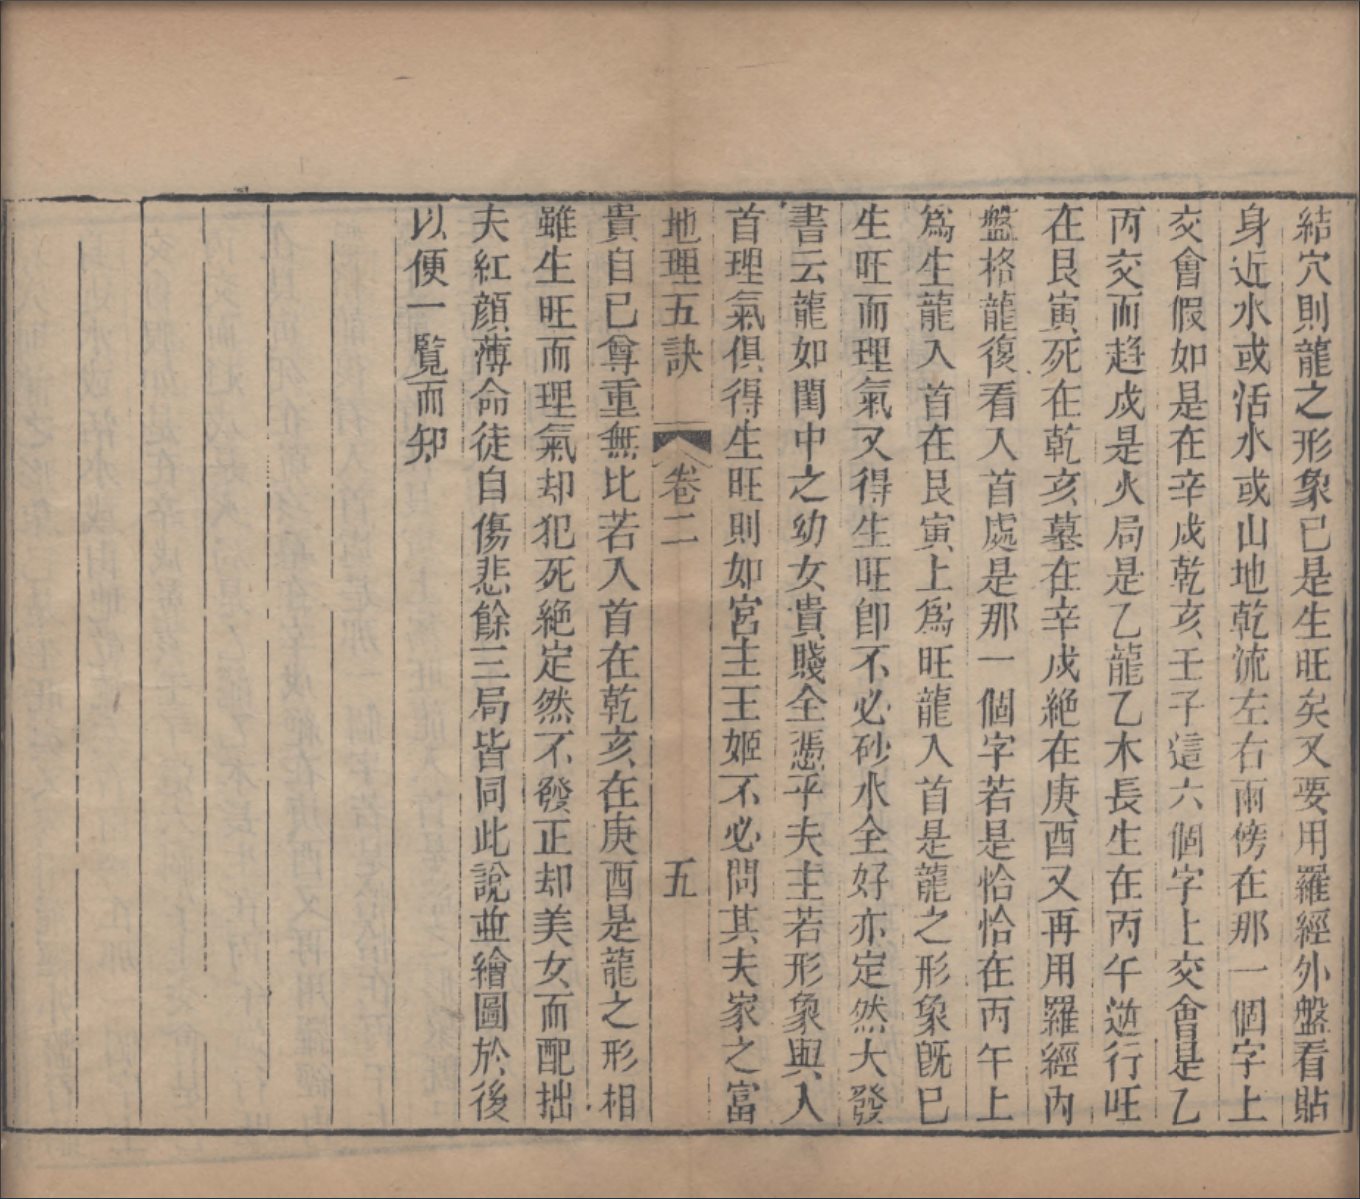 結穴則龍之形象已是生旺矣又要用羅經外盤看貼
身近水或活水或山地乾流左右兩傍在那一個字上
交會假如是在辛戌乾亥壬子這六個字上交會是乙
丙交而趋戌是火局是乙龍乙木長生在丙午逆行旺
在艮寅死在乾亥墓在辛戌絶在庚酉又再用羅經內
盤格龍復看入首處是那一個字若是恰恰在丙午上
為生龍入首在艮寅上為旺龍入首是龍之形象旣已
生旺而理氣又得生旺卽不必砂水全好亦定然大發
書云龍如閨中之幼女貴賤全憑乎夫主若形象與入
首理氣俱得生旺則如宮主王姬不必問其夫家之富
地理五訣 卷二 五
貴自已尊重無比若入首在乾亥在庚酉是龍之形相
雖生旺而理氣却犯死絶定然不發正却美女而配拙
夫紅顔薄命徒自傷悲餘三局皆同此說並繪圖於後
以便一覧而知